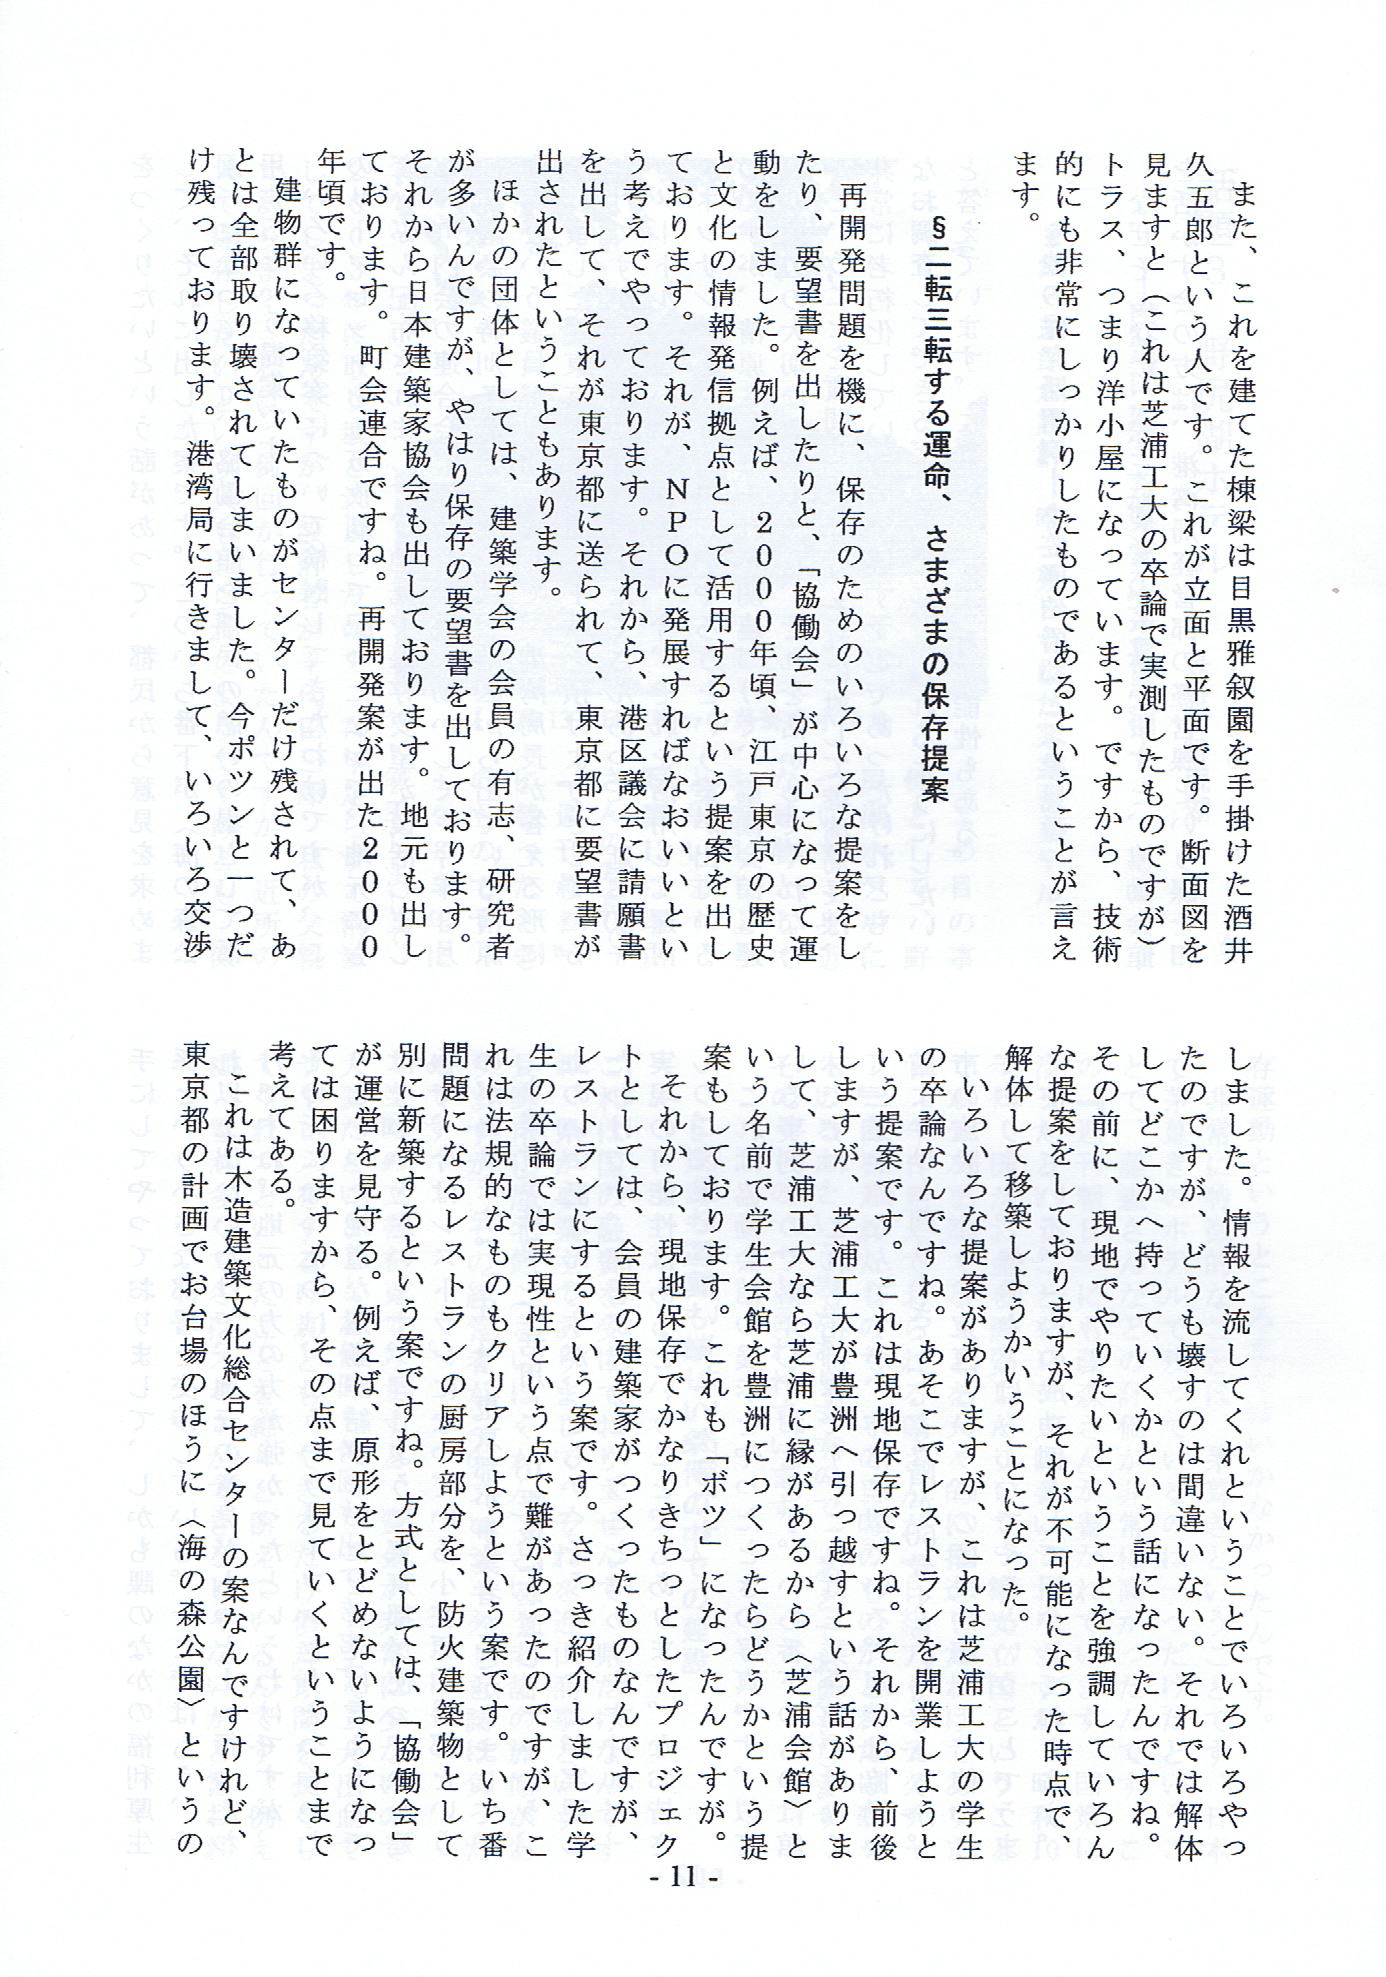 また、これを建てた棟梁は目黒雅叙園を手掛けた酒井
久五郎という人です。これが立面と平面です。断面図を
見ますと（これは芝浦工大の卒論で実測したものですが）
トラス、つまり洋小屋になっています。ですから、技術
的にも非常にしっかりしたものであるということが言え
ます。
§二転三転する運命、さまざまの保存提案
再開発問題を機に、保存のためのいろいろな提案をし
たり、要望書を出したりと、「協働会」が中心になって運
動をしました。例えば、2000年頃、江戸東京の歴史
と文化の情報発信拠点として活用するという提案を出し
ております。それが、NPOに発展すればなおいいとい
う考えでやっております。それから、港区議会に請願書
を出して、それが東京都に送られて、東京都に要望書が
出されたということもあります。
ほかの団体としては、建築学会の会員の有志、研究者
が多いんですが、やはり保存の要望書を出しております。
それから日本建築家協会も出しております。地元も出し
ております。町会連合ですね。再開発案が出た2000
年頃です。
建物群になっていたものがセンターだけ残されて、あ
とは全部取り壊されてしまいました。今ポツンと一つだ
け残っております。港湾局に行きまして、いろいろ交渉
しました。情報を流してくれということでいろいろやっ
たのですが、どうも壊すのは間違いない。それでは解体
してどこかへ持っていくかという話になったんですね。
その前に、現地でやりたいということを強調していろん
な提案をしておりますが、それが不可能になった時点で、
解体して移築しようかいうことになった。
いろいろな提案がありますが、これは芝浦工大の学生
の卒論なんですね。あそこでレストランを開業しようと
いう提案です。これは現地保存ですね。それから、前後
しますが、芝浦工大が豊洲へ引っ越すという話がありま
して、芝浦工大なら芝浦に縁があるから〈芝浦会館〉と
いう名前で学生会館を豊洲につくったらどうかという提
案もしております。これも「ボツ」になったんですが。
それから、現地保存でかなりきちっとしたプロジェク
トとしては、会員の建築家がつくったものなんですが、
レストランにするという案です。さっき紹介しました学
生の卒論では実現性という点で難があったのですが、こ
れは法規的なものもクリアしようという案です。いち番
問題になるレストランの厨房部分を、防火建築物として
別に新築するという案ですね。方式としては、「協働会」
が運営を見守る。例えば、原形をとどめないようになっ
ては困りますから、その点まで見ていくということまで
考えてある。
これは木造建築文化総合センターの案なんですけれど、
東京都の計画でお台場のほうに〈海の森公園〉というの
- 11 -